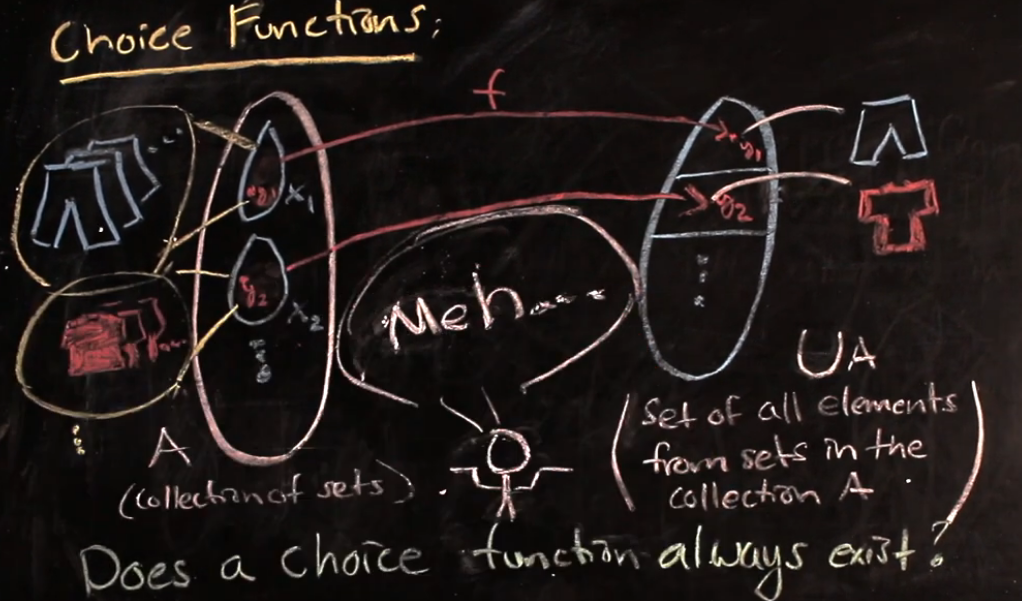 Choice Functions:
f
y₁
x₁
y₁
y₂
x₂
y₂
Meh...
A
(collection of sets)
UA
(set of all elements
from sets in the
collection A)
Does a choice function always exist?